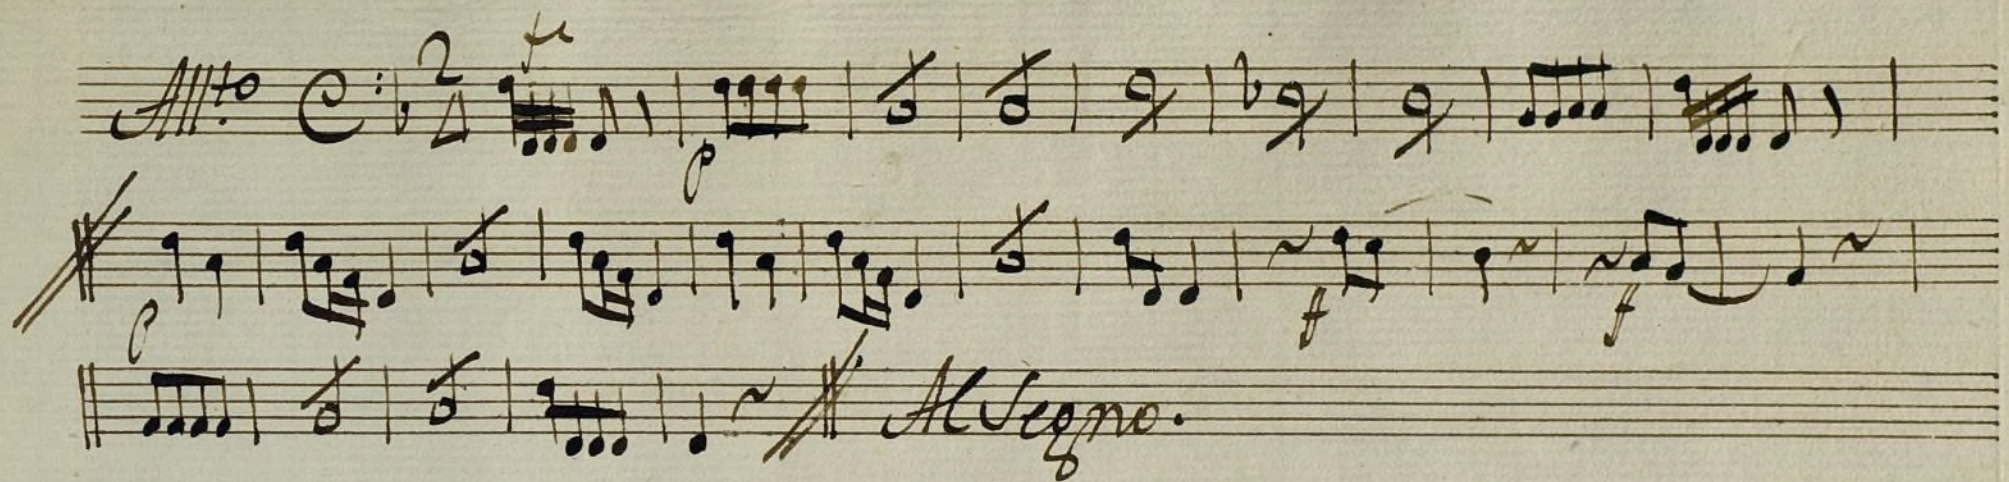 All.to 2 4 fe
p
p f f
Al Segno.